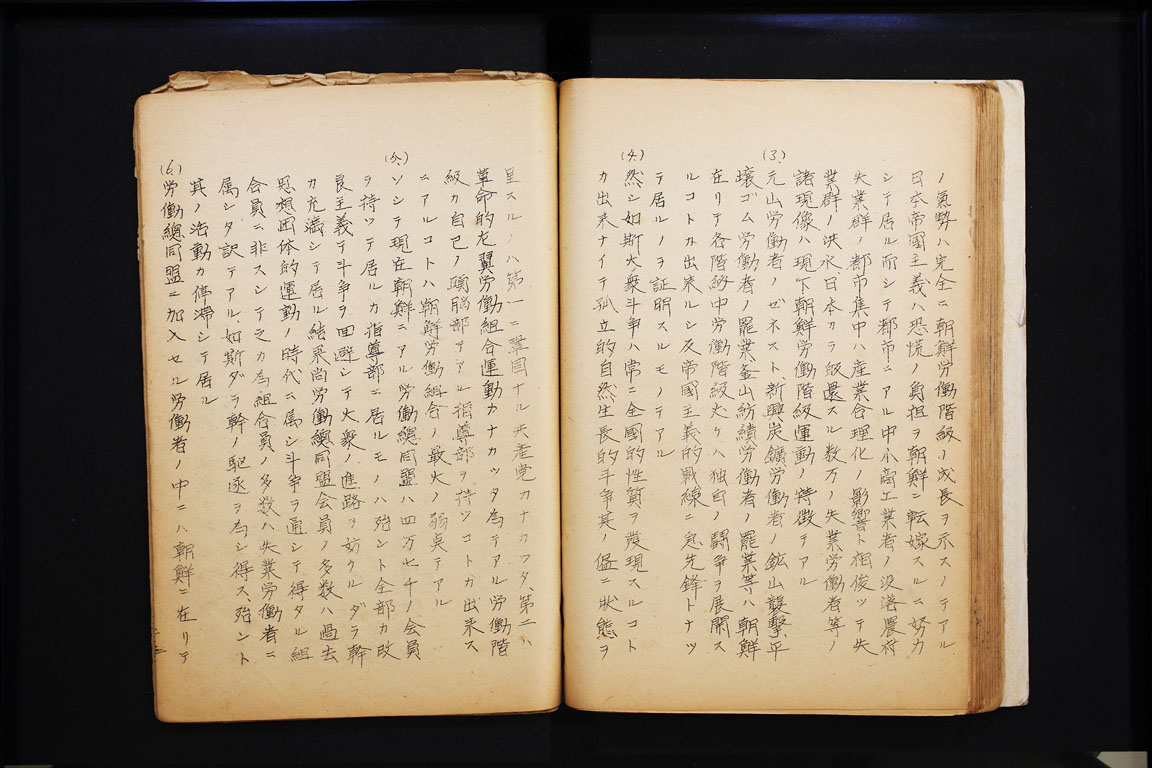 ノ氣勢ハ完全ニ朝鮮労働階級ノ成長ヲ示スノテアル
日本帝國主義ハ恐慌ノ負担ヲ朝鮮ニ転嫁スルニ努力
シテ居ル而シテ都市ニアル中小商工業者ノ没落農村
失業群ノ都市集中ハ産業合理化ノ影響ト相俟ッテ失
業群ノ洪水日本カラ皈還スル数万ノ失業労働者等ノ
諸現像ハ現下朝鮮労働階級運動ノ特徴テアル
(3.)
元山労働者ノゼネスト、新興炭鑛労働者ノ鉱山襲撃平
壌ゴム労働者ノ罷業釜山紡績労働者ノ罷業等ハ朝鮮
在リテ各階級中労働階級丈ケハ独自ノ鬪争ヲ展開ス
ルコトカ出来ルシ反帝國主義的戰線ニ急先鋒トナッ
テ居ルノヲ証明スルモノテアル
(4.)
然シ如斯大衆斗争ハ常ニ全國的性質ヲ発現スルコト
カ出来ナイテ孤立的自然生長的斗争其ノ侭ニ状態ヲ
呈スルノハ第一ニ鞏固ナル共産党カナカッタ第二ハ
革命的左翼労働組合運動カナカッタ為テアル労働階
級カ自己ノ頭脳部テアル指導部ヲ持ツコトカ出来ス
ニアルコトハ朝鮮労働組合ノ最大ノ弱点テアル
(5.)
ソシテ現在朝鮮ニアル労働總同盟ハ四万七千ノ会員
ヲ持ッテ居ルカ指導部ニ居ルモノハ殆ント全部カ改
良主義テ斗争ヲ回避シテ大衆ノ進路ヲ妨クルダラ幹
カ充満シテ居ル結果尚労働總同盟会員ノ多数ハ過去
思想団体的運動ノ時代ニ属シ斗争ヲ通シテ得タル組
合員ニ非スシテ之カ為組合員ノ多数ハ失業労働者ニ
属シタ訳テアル如斯ダラ幹ノ駆逐ヲ為シ得ス殆ント
其ノ活動カ停滞シテ居ル
(6.)
労働總同盟ニ加入セル労働者ノ中ニハ朝鮮ニ在リテ